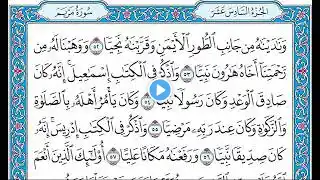 الجزء السادس عشر
سورة مريم
وَنَٰدَيْنَٰهُ مِن جَانِبِ ٱلطُّورِ ٱلْأَيْمَنِ وَقَرَّبْنَٰهُ نَجِيًّا ٥٢ وَوَهَبْنَا لَهُۥ مِن
رَّحْمَتِنَآ أَخَاهُ هَٰرُونَ نَبِيًّا ٥٣ وَٱذْكُرْ فِى ٱلْكِتَٰبِ إِسْمَٰعِيلَ إِنَّهُۥ كَانَ
صَادِقَ ٱلْوَعْدِ وَكَانَ رَسُولًا نَّبِيًّا ٥٤ وَكَانَ يَأْمُرُ أَهْلَهُۥ بِٱلصَّلَوٰةِ
وَٱلزَّكَوٰةِ وَكَانَ عِندَ رَبِّهِۦ مَرْضِيًّا ٥٥ وَٱذْكُرْ فِى ٱلْكِتَٰبِ إِدْرِيسَ إِنَّهُۥ
كَانَ صِدِّيقًا نَّبِيًّا ٥٦ وَرَفَعْنَٰهُ مَكَانًا عَلِيًّا ٥٧ أُو۟لَٰٓئِكَ ٱلَّذِينَ أَنْعَمَ